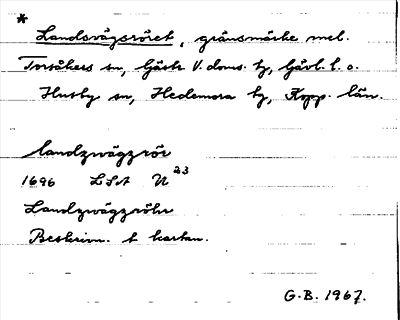 *
Landsvägsröret, gränsmärke mel.
Torsåkers sn, Gästr. V. doms. hg, Gävl. l. o.
Husby sn, Hedemora hg, Kopp. län.
landzwägzrör
1696 LSA U 23
Landzwägzröhr
Beskrivn. t kartan.
G.B. 1967.